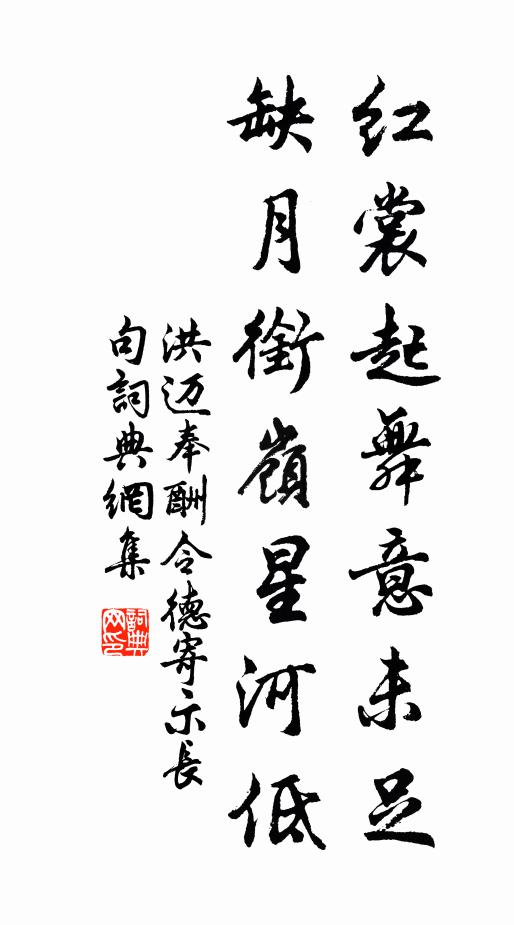 红裳起舞意未足
缺月銜嶺星河低
洪迈奉酬令德寄示長
句詞典網集
詞典网印